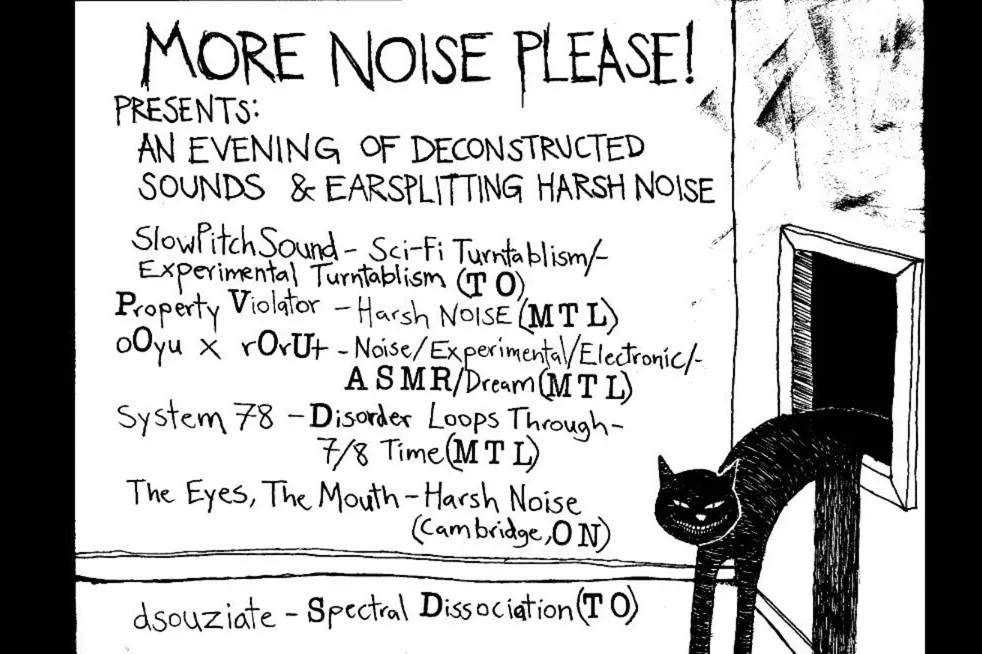 MORE NOISE PLEASE!
PRESENTS:
AN EVENING OF DECONSTRUCTED
SOUNDS & EARSPLITTING HARSH NOISE
SlowPitchSound - Sci-Fi Turntablism/-
Experimental Turntablism (TO)
Property Violator - Harsh NOISE (MTL)
oOyu x rOrUt - Noise/Experimental/Electronic/-
ASMR/Dream (MTL)
System 78 - Disorder Loops Through-
7/8 Time (MTL)
The Eyes, The Mouth - Harsh Noise
(Cambridge, ON)
dsouziate - Spectral Dissociation (TO)